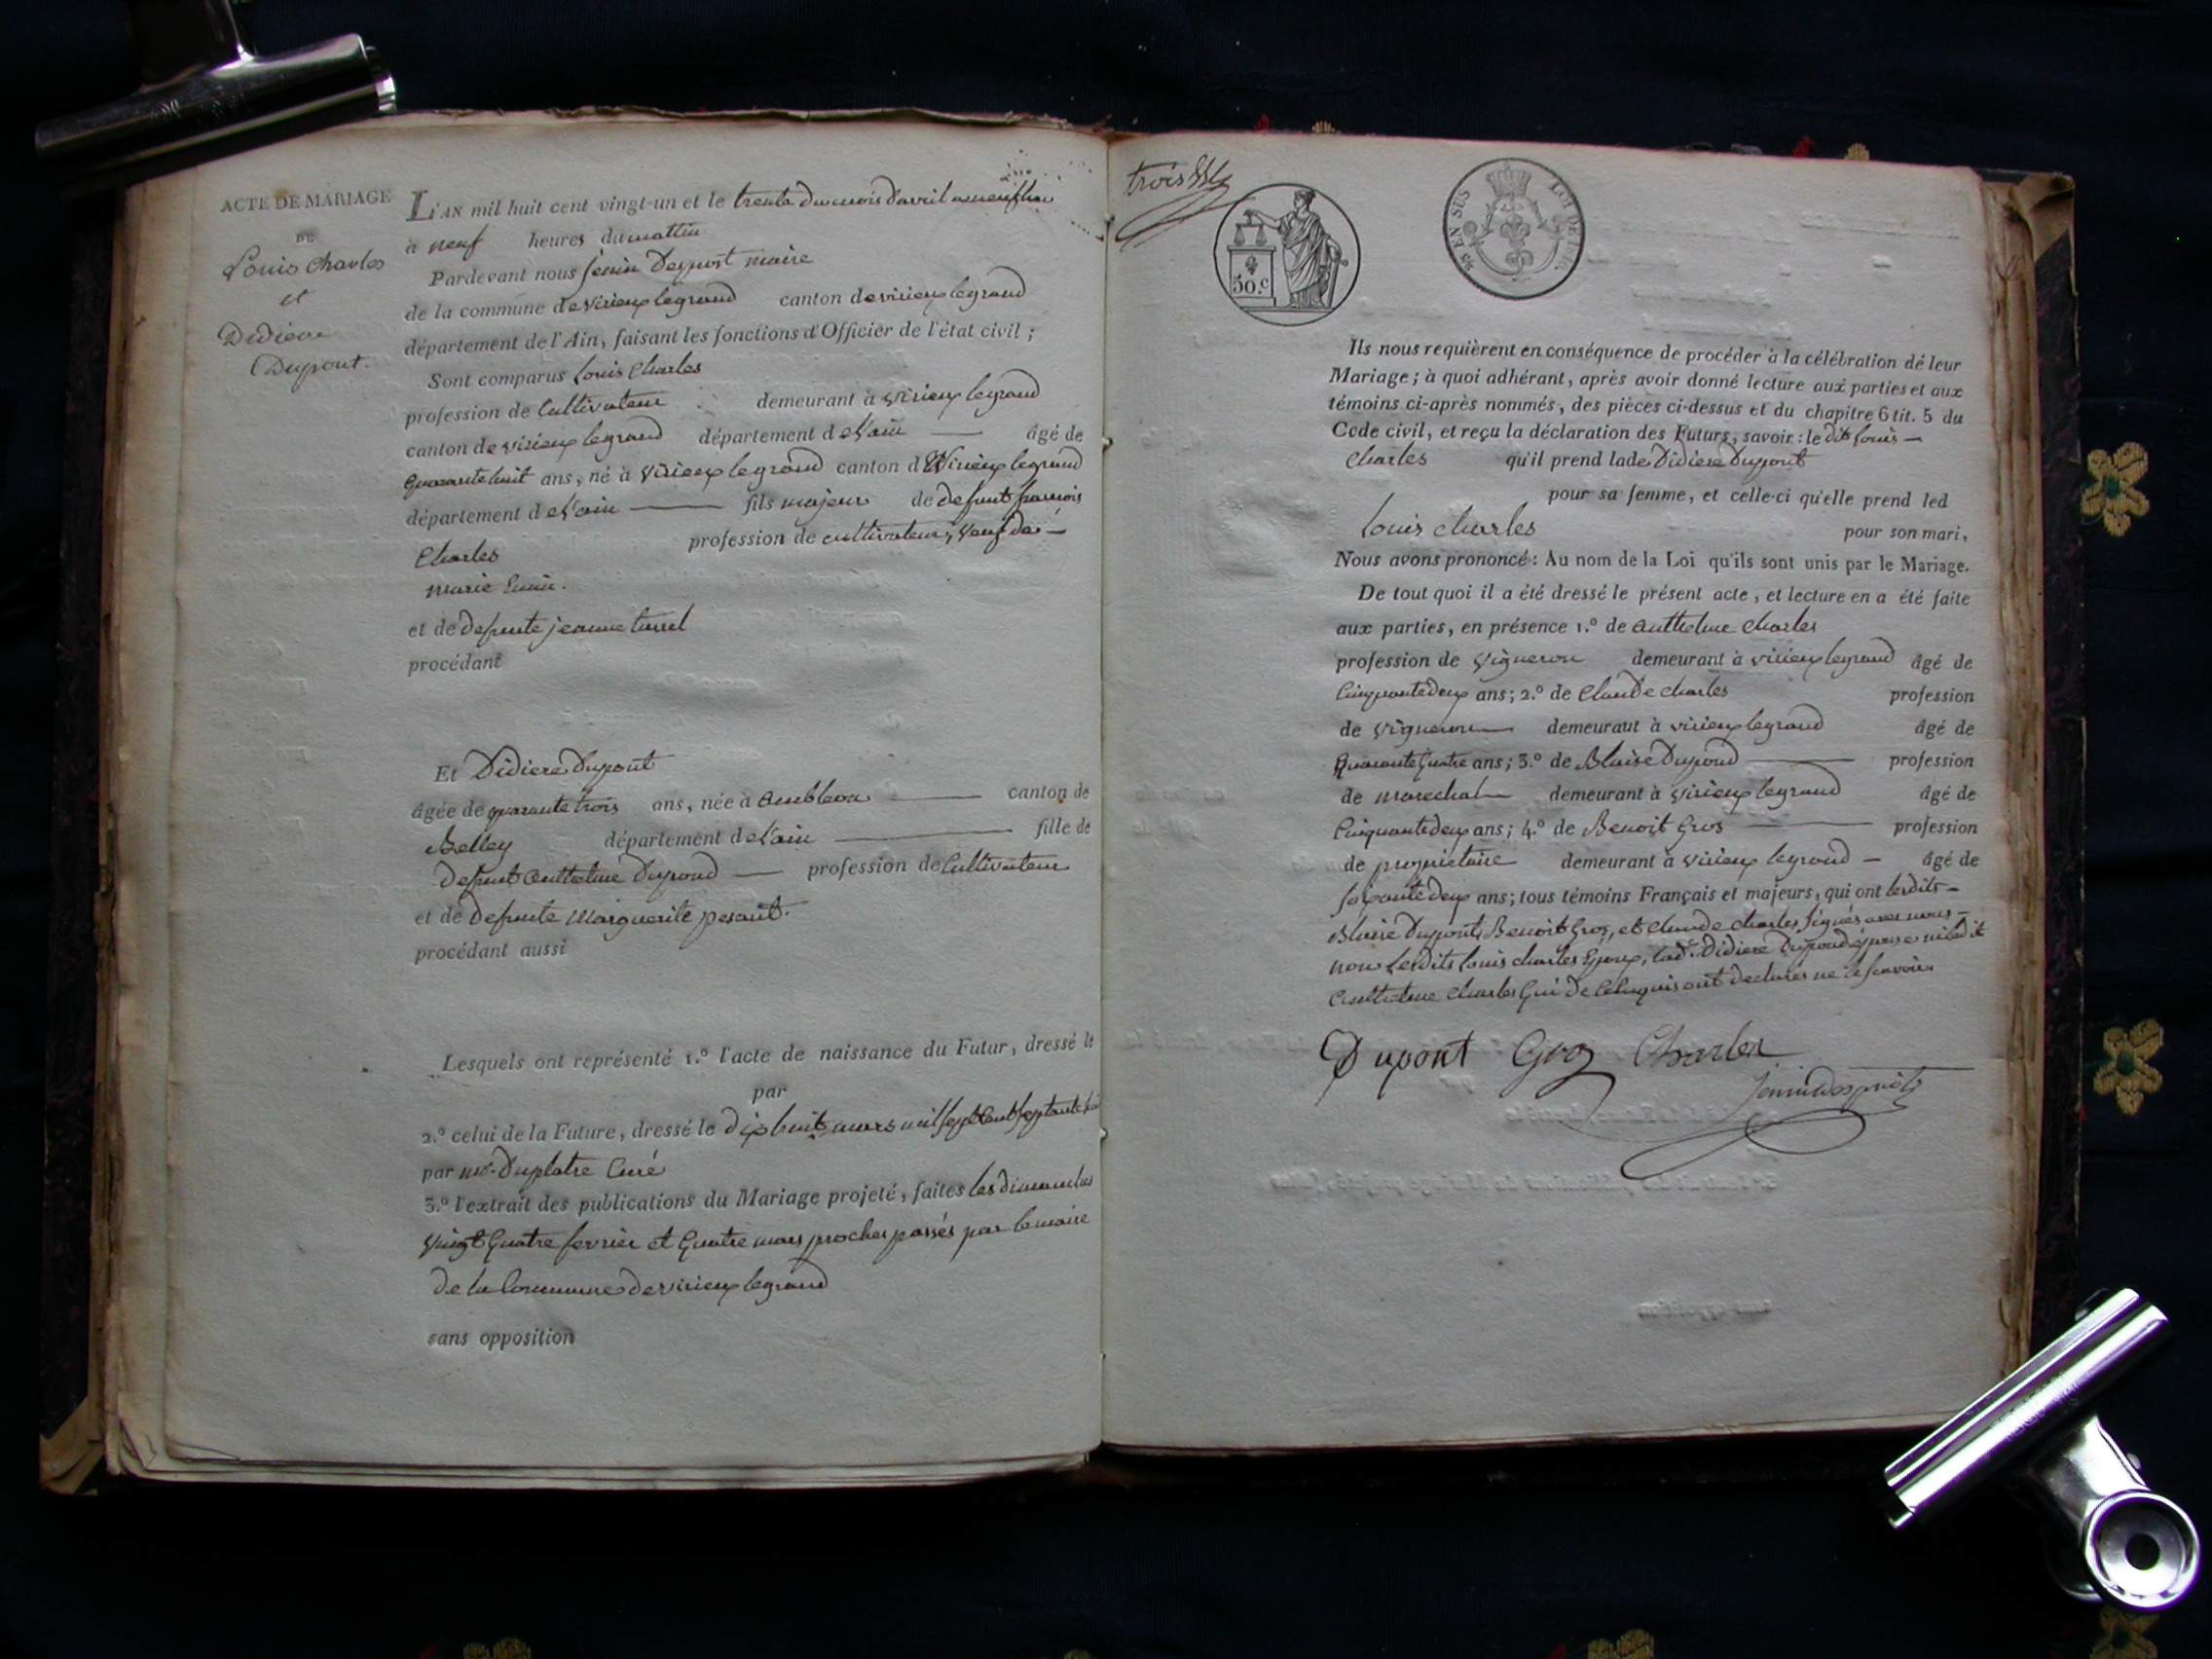 ACTE DE MARIAGE
DE
Louis Charles
et
Didiere
Dupont.
L'AN mil huit cent vingt-un et le trente du mois d'avril
à neuf heures du mattin
Pardevant nous Jenin Desprost maire
de la commune de virieux legrand canton de virieux legrand
département de l'Ain, faisant les fonctions d'Officier de l'état civil ;
Sont comparus Louis Charles
profession de Cultivateur demeurant à virieux legrand
canton de virieux legrand département de l'ain — âgé de
quarante huit ans, né à virieux legrand canton d Virieux legrand
département de l'ain — fils majeur de defunt francois
Charles profession de cultivateur, veuf de —
marie
et de defunte jeanne
procédant
Et Didiere Dupont
âgée de quarante trois ans, née à Ambleon — canton de
Belley département de l'ain — fille de
defunt anthelme Dupond — profession de Cultivateur
et de defunte Marguerite pesant.
procédant aussi
Lesquels ont représenté 1.° l'acte de naissance du Futur, dressé le
par
2.° celui de la Future, dressé le dix huit mars mil sept cent septante
par mr. Duplatre Curé
3.° l'extrait des publications du Mariage projeté, faites les dimanches
vingt quatre fevrier et quatre mars proches passés par le maire
de la Commune de virieux legrand
sans opposition
trois
50.c
25 EN SUS LOI DE
Ils nous requièrent en conséquence de procéder à la célébration de leur
Mariage ; à quoi adhérant, après avoir donné lecture aux parties et aux
témoins ci-après nommés, des pièces ci-dessus et du chapitre 6 tit. 5 du
Code civil, et reçu la déclaration des Futurs, savoir : le dit Louis —
Charles qu'il prend lade Didiere Dupont
pour sa femme, et celle-ci qu'elle prend led
Louis Charles pour son mari,
Nous avons prononcé : Au nom de la Loi qu'ils sont unis par le Mariage.
De tout quoi il a été dressé le présent acte, et lecture en a été faite
aux parties, en présence 1.° de anthelme Charles
profession de vigneron demeurant à virieux legrand âgé de
Cinquante deux ans ; 2.° de Claude Charles profession
de vigneron demeurant à virieux legrand âgé de
quarante quatre ans ; 3.° de Blaise Dupond — profession
de marechal demeurant à virieux legrand âgé de
Cinquante deux ans ; 4.° de Benoit Gros — profession
de proprietaire demeurant à virieux legrand — âgé de
soixante deux ans ; tous témoins Français et majeurs, qui ont lesdits —
Blaise Dupont, Benoit Gros, et Claude Charles signés avec nous —
non lesdits Louis Charles Epoux, lade. Didiere Dupond épouse ni ledit
anthelme Charles qui de ce enquis ont declarés ne le scavoir
Dupont Gros Charles
Jenin Desprost